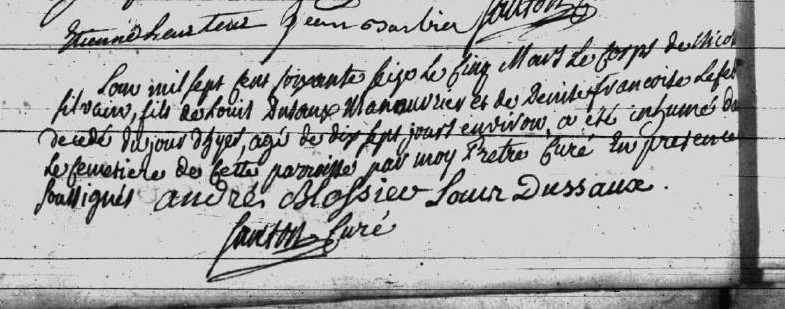 Etienne heurteur Jean Barbier Santon
L'an mil sept cens soixante seize le cinq Mars le corps de Nico
silvain, fils de Louis Dusaux Manouvrier et de Denise francoise Lefe
decedé du jour d'hyer, agé de dix sept jours environ, a été inhumé da
le cemetiere de cette paroisse par moy Prêtre Curé En presence
soussignés andré Blossier Louis Dussaux.
Curé